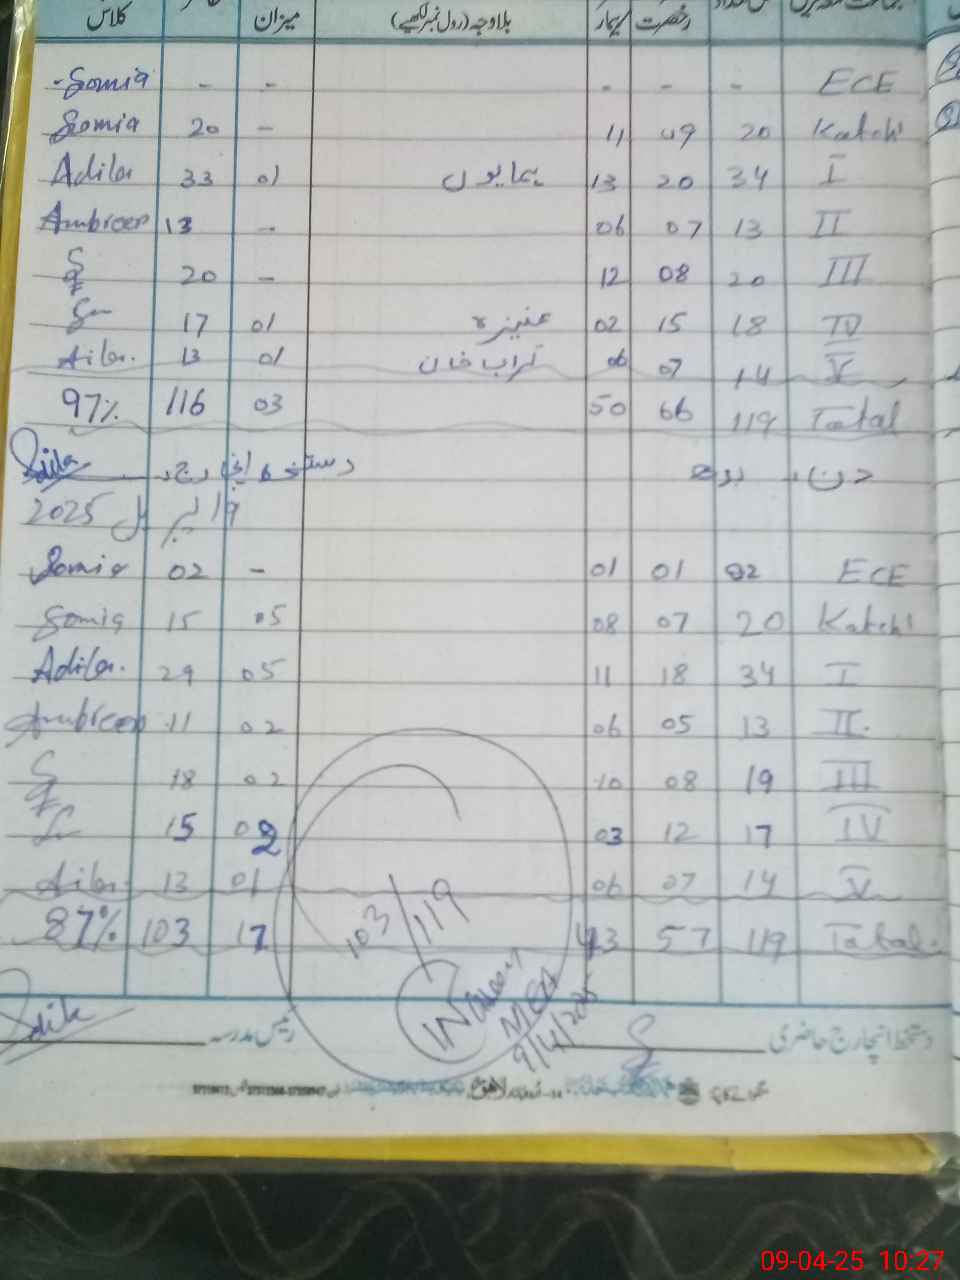 کلاس میزان بلاوجہ (رول نمبر لکھیے) بیمار رخصت
Somia - - - - - ECE
Somia 20 - 11 09 20 Katchi
Adila 33 01 ہمایوں 13 20 34 I
Ambreen 13 - 06 07 13 II
20 - 12 08 20 III
17 01 عنیزہ 02 15 18 IV
Aila. 13 01 تراب خان 06 07 14 V
97% 116 03 50 66 119 Total
دن بدھ
9 اپریل 2025
Somia 02 - 01 01 02 ECE
Somia 15 05 08 07 20 Katchi
Adila. 29 05 11 18 34 I
Ambreen 11 02 06 05 13 II.
18 02 10 08 19 III
15 02 03 12 17 IV
Aila. 13 01 06 07 14 V
87% 103 17 43 57 119 Total.
103/119
MEA
9/4/2025
رئیس مدرسہ دستخط انچارج حاضری
09-04-25 10:27